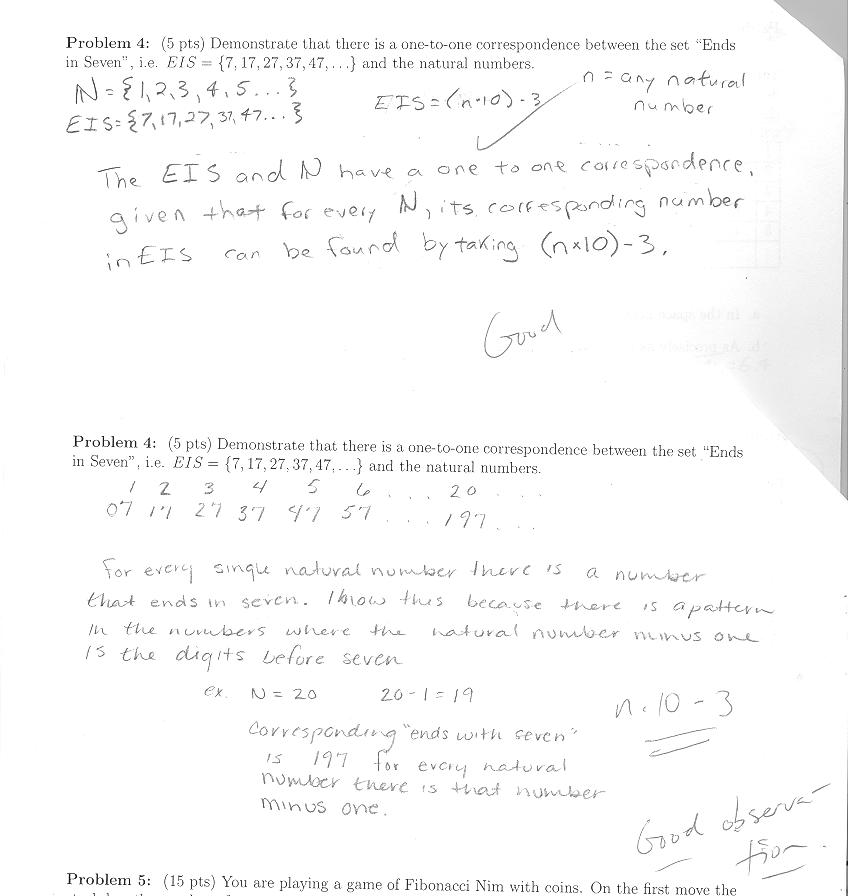 Problem 4: (5 pts) Demonstrate that there is a one-to-one correspondence between the set "Ends
in Seven", i.e. EIS = {7, 17, 27, 37, 47, . . .} and the natural numbers.
N = {1, 2, 3, 4, 5 . . . }
EIS = (n·10) - 3
n = any natural
number
EIS = {7, 17, 27, 37, 47 . . . }
The EIS and N have a one to one correspondence,
given that for every N, its corresponding number
in EIS can be found by taking (n×10)-3.
Good
Problem 4: (5 pts) Demonstrate that there is a one-to-one correspondence between the set "Ends
in Seven", i.e. EIS = {7, 17, 27, 37, 47, . . .} and the natural numbers.
1 2 3 4 5 6 . . . 20 . . .
07 17 27 37 47 57 . . . 197 . . .
For every single natural number there is a number
that ends in seven. I know this because there is a pattern
in the numbers where the natural number minus one
is the digits before seven
ex. N = 20 20 - 1 = 19
n·10 - 3
Corresponding "ends with seven"
is 197 for every natural
number there is that number
minus one.
Good observa-
tion.
Problem 5: (15 pts) You are playing a game of Fibonacci Nim with coins. On the first move the